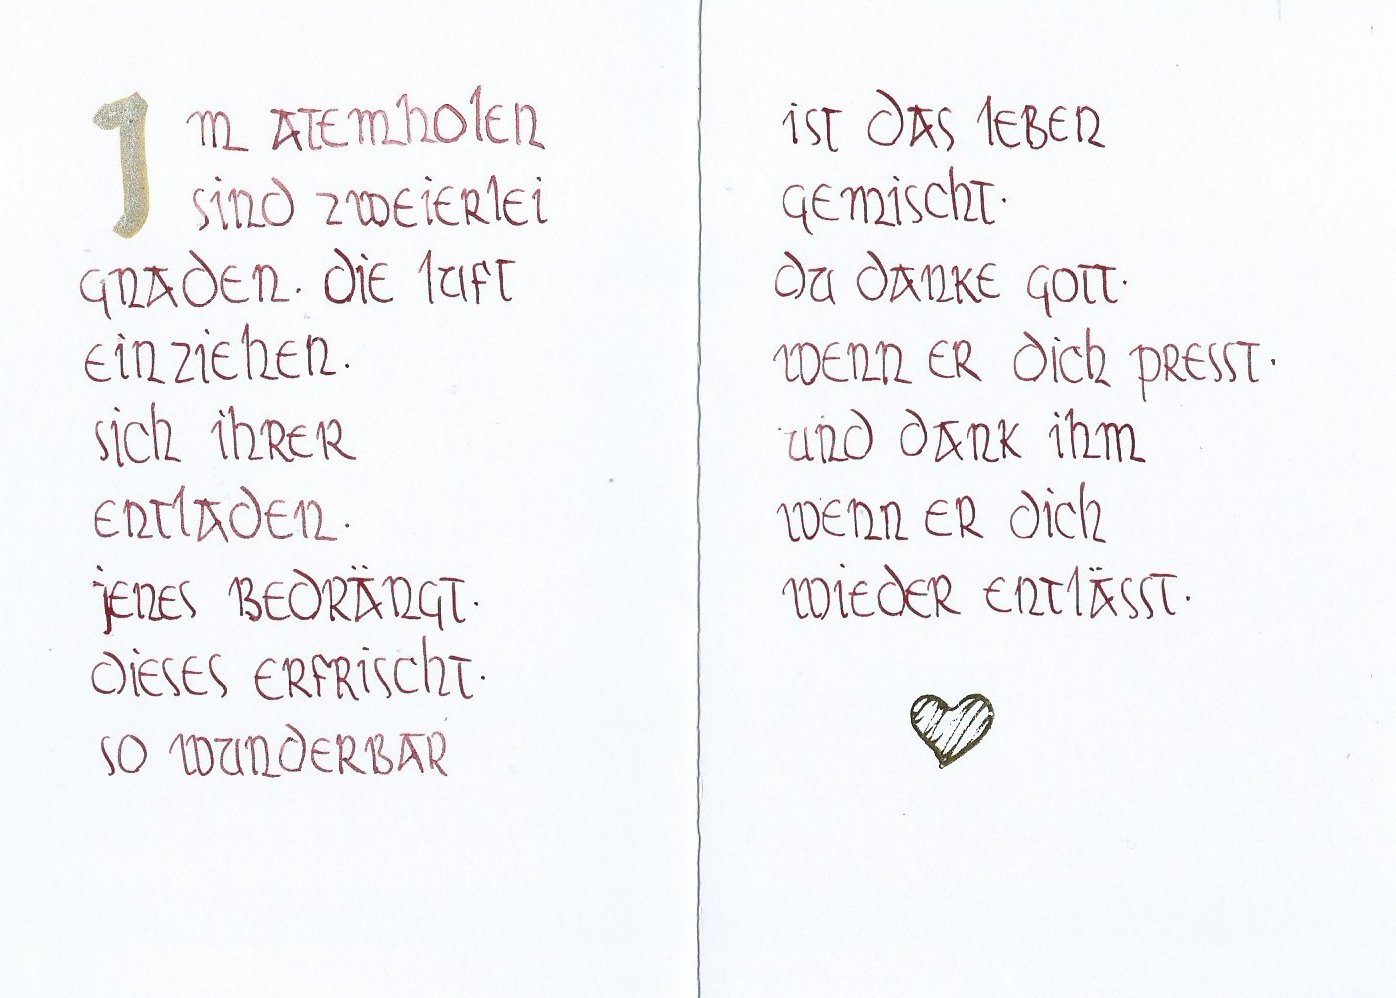 Im Atemholen
sind zweierlei
Gnaden. Die Luft
einziehen.
sich ihrer
entladen.
jenes bedrängt.
dieses erfrischt.
so wunderbar
ist das Leben
gemischt.
du danke Gott.
wenn er dich presst.
und dank ihm
wenn er dich
wieder entlässt.